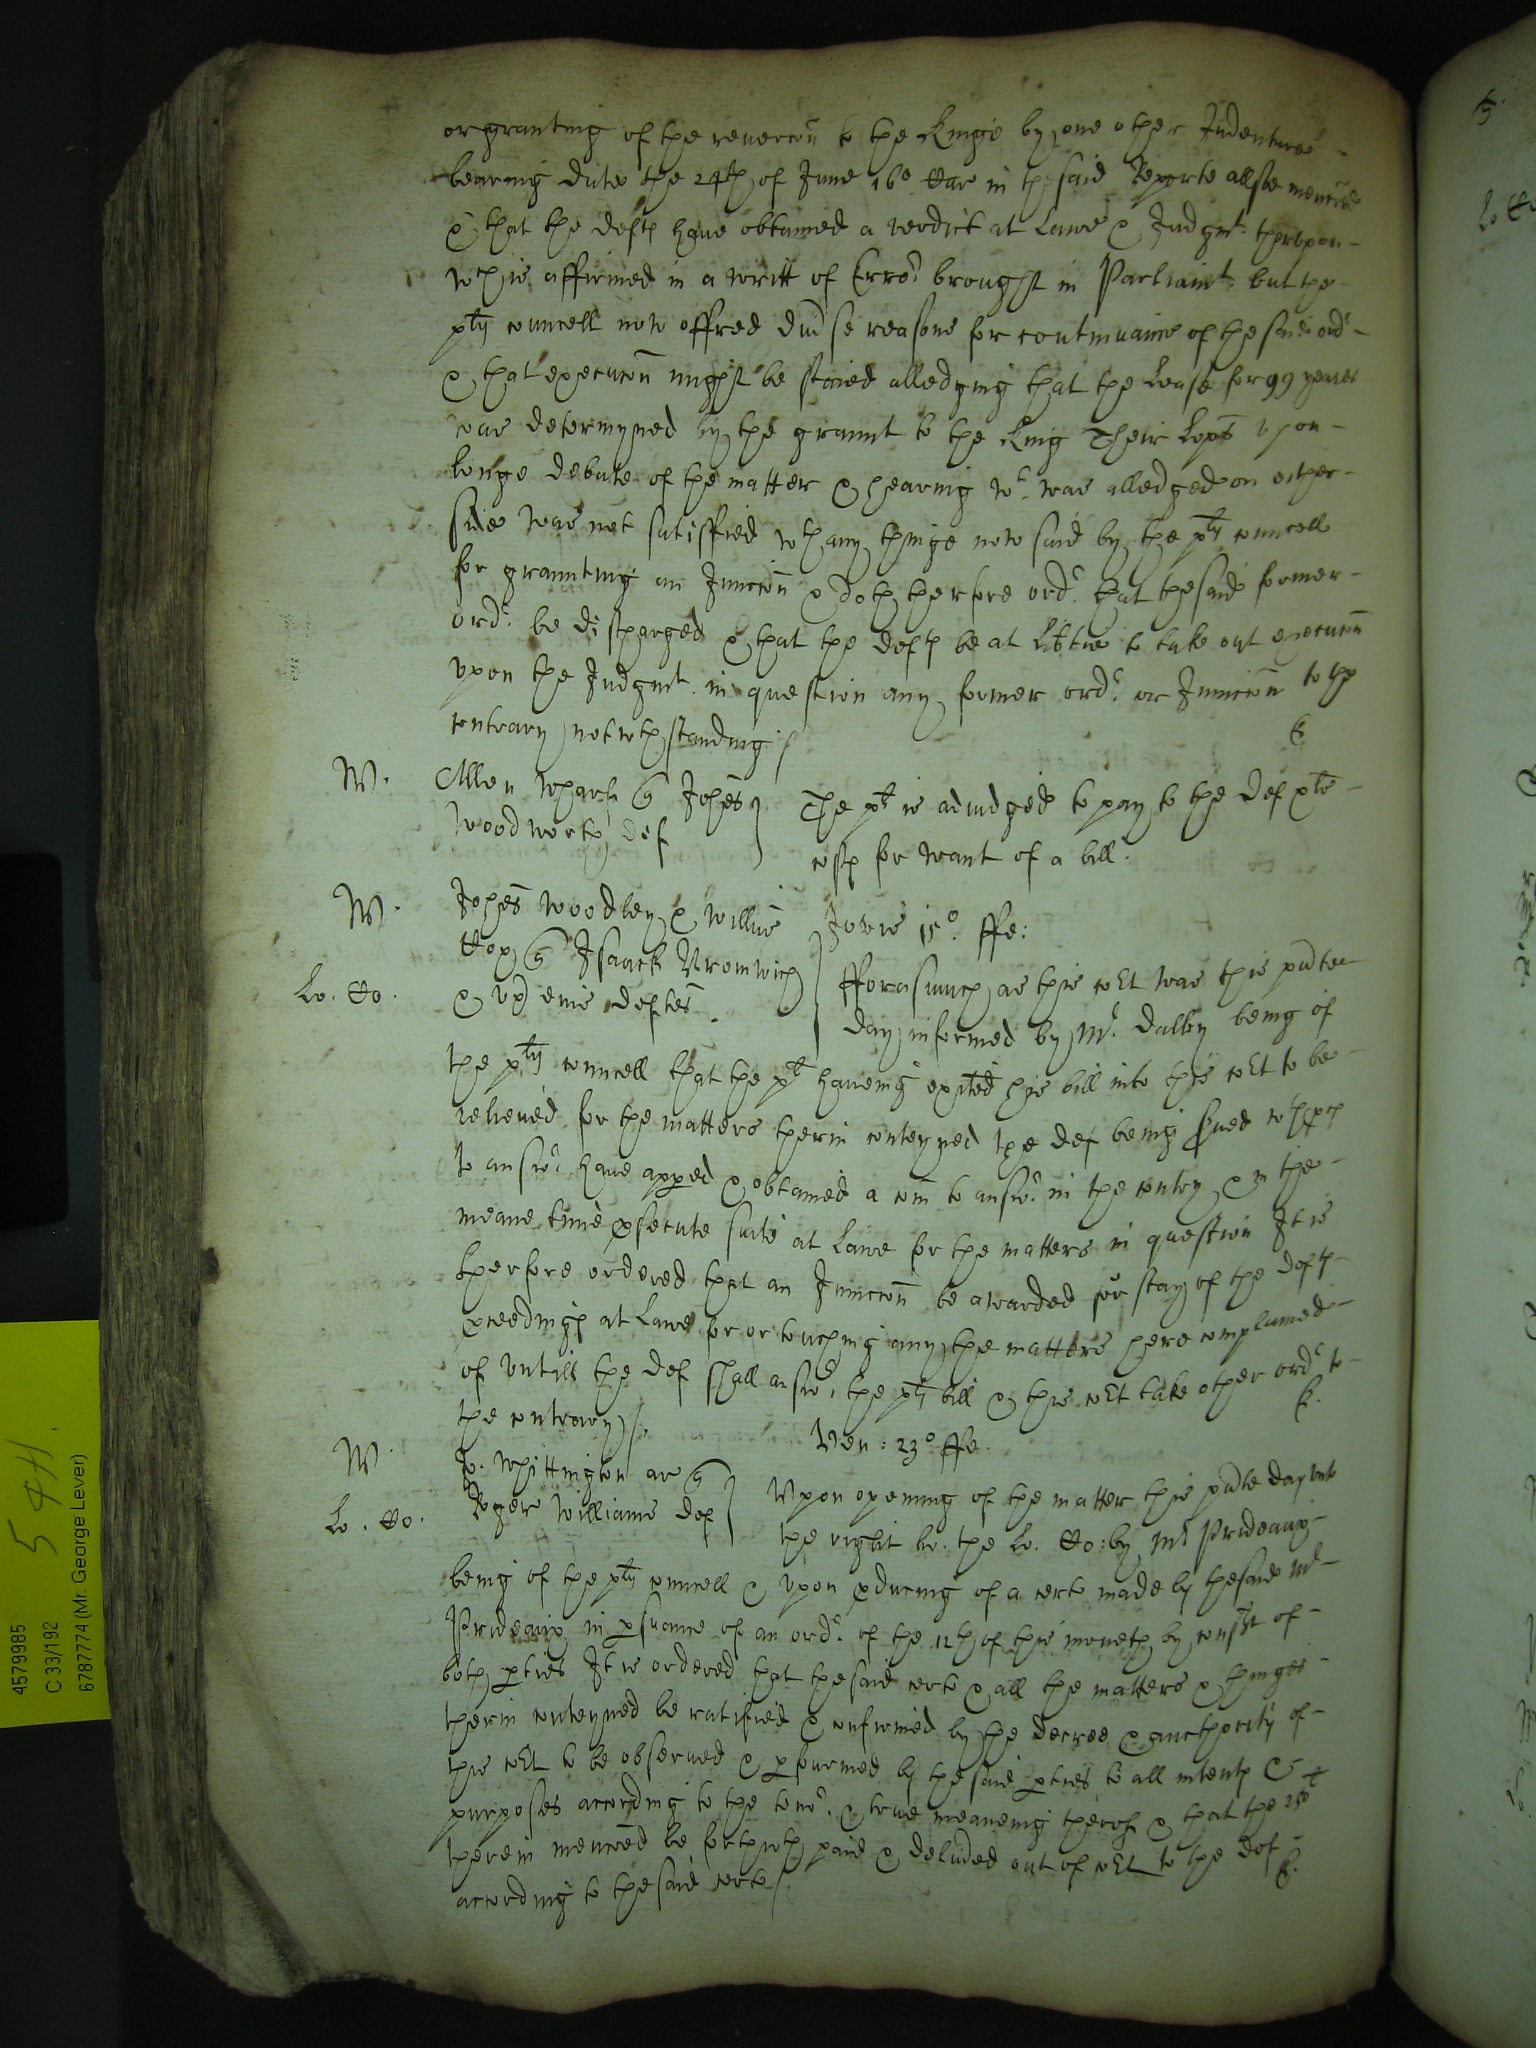 or granting of the revercōn to the Kinge by one other Indenture
bearing date the 24th of June 16° Car in the said Reporte allsoe menc̄oed
& that the defts have obtained a verdict at Lawe & Judgmt. therupon
wch is affirmed in a writt of Error brought in Parliamt. but the
plts councell now offred div̄se reasons for continuance of the said ordr
& that execuc̄on might be staied alledging that the Lease for 99 yeares
was determyned by the graunt to the King Their Lopps upon
longe debate of the matter & hearing wt. was alledged on either
side was not satisffied wth any thinge now said by the plts councell
for graunting an Iniunc̄on & doth therfore ordr. that the said former
ordr. be discharged & that the defts be at Lib̄tie to take out execuc̄on
upon the Judgmt. in question any former ordr. or Iniunc̄on to the
contrary notwthstanding /
W. Allen Johēs
Woodworth def
The plt is adiudged to pay to the def
costs for want of a bill.
W. Johēs Woodley & Willūs
Cox Isaack Bromwich
& ux eius deftes.
Lo. Co.
Jovis 15° ffe:
fforasmuch as this cort was this p̄nte
day informed by Mr. Dalby being of
the plts councell that the plt haveing exh̄ited his bill into this cort to be
relieved for the matters therin conteyned the def being served wth p̄ces
to answr. have app̄ed & obtained a com̄ to answr. in the contry & in the
meane time p̄secute suite at Lawe for the matters in question It is
therfore ordered that an Iniunc̄on be awarded for stay of the defts
p̄ceedings at Lawe for or touching any the matters here complained
of untill the def shall answr. the plts bill & this cort take other ordr to
the contrary /.
Ven: 23° ffe.
W. Whittington ar
Roger Williams def
Lo. Co.
Upon opening of the matter this p̄nte day unto
the right ho. the Lo. Co: by Mr Prideaux
being of the plts councell & upon p̄ducing of a certe made by the said Mr
Prideaux in p̄suance of an ordr. of the 12th of this moneth by consent of
both p̄ties It is ordered that the said certe & all the matters & thinges
therin conteyned be ratified & confirmed by the decree & aucthority of
this cort to be observed & p̄formed by the said p̄ties to all intents &
purposes according to the tenor. & true meaneing therof & that the
therein menc̄oed be forthwth paid & delīved out of cort to the def
according to the said certe /
4579985
C 33/192
6787774 (Mr. George Lever)